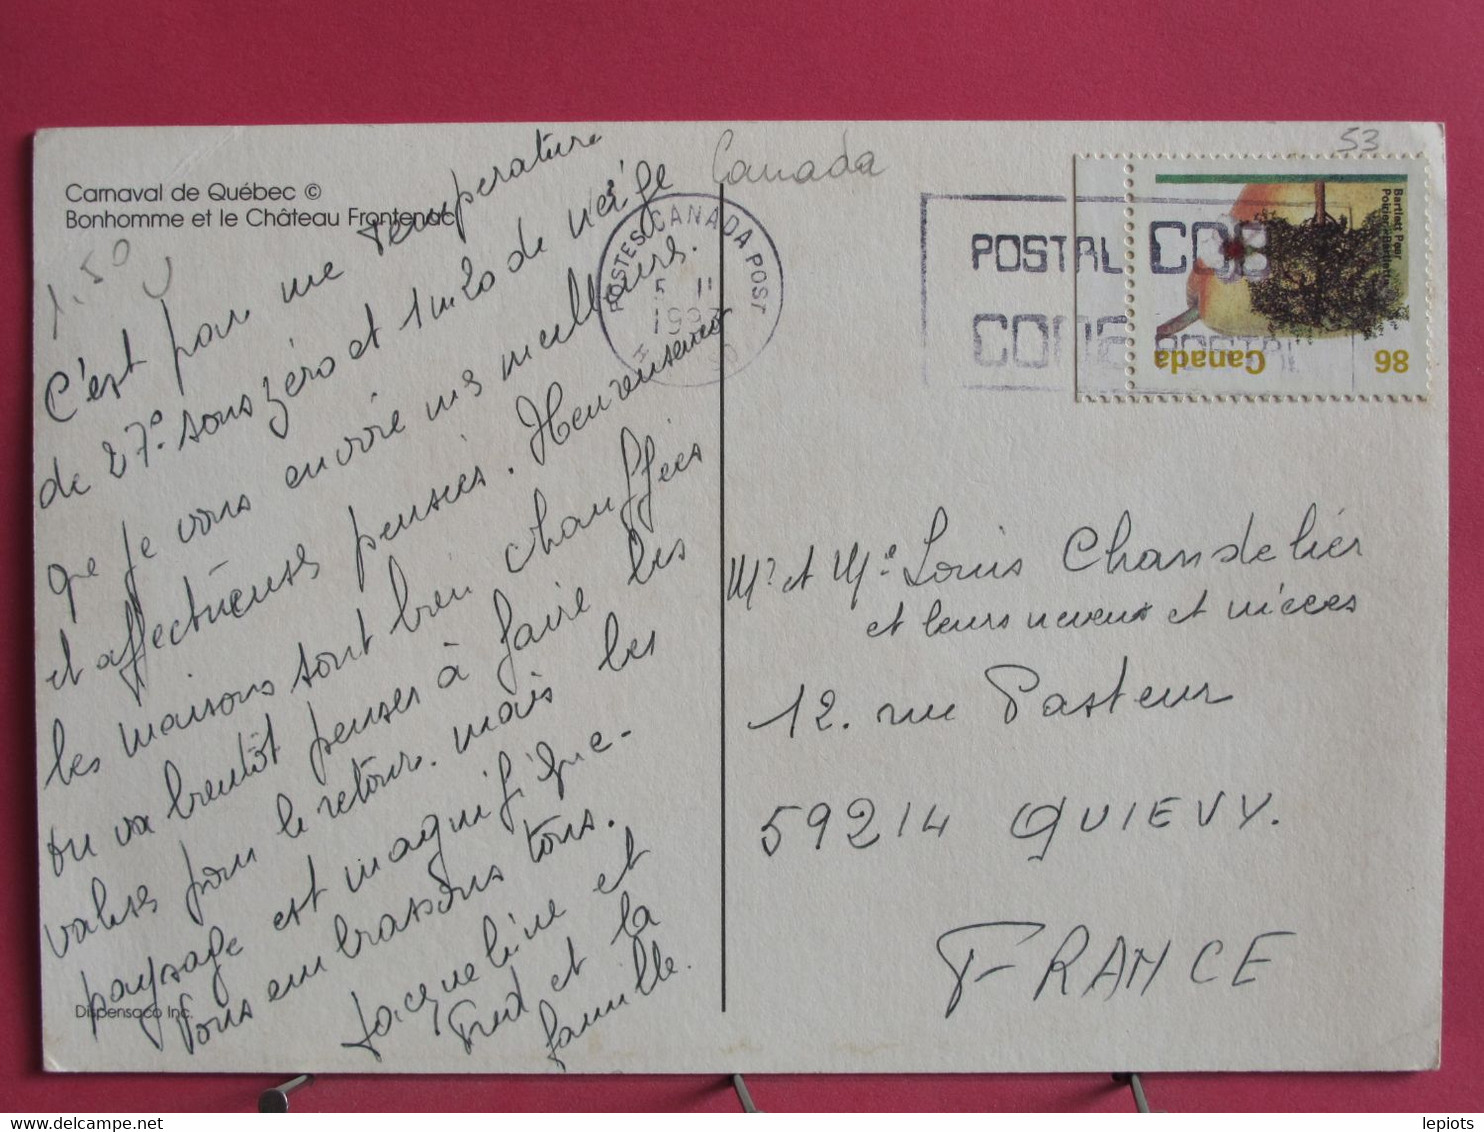 Carnaval de Québec ©
Bonhomme et le Château Frontenac
1.50
C'est par une température
de 27° sous zéro et 1m20 de neige
que je vous envoie mes meilleures
et affectueuses pensées. Heureusement
les maisons sont bien chauffées
on va bientôt penser à faire les
valises pour le retour. mais les
paysage est magnifique.
Vous embrassons tous.
Jacqueline et
Fred et la
famille.
Dispensaco Inc.
Canada
53
POSTES CANADA POST
5 II
POSTAL CODE
CODE POSTAL
Bartlett Pear
Poirier Bartlett
Canada
86
Mr et Me Louis Chandelier
et leurs neveux et nièces
12. rue Pasteur
59214 QUIEVY.
FRANCE
lepiots